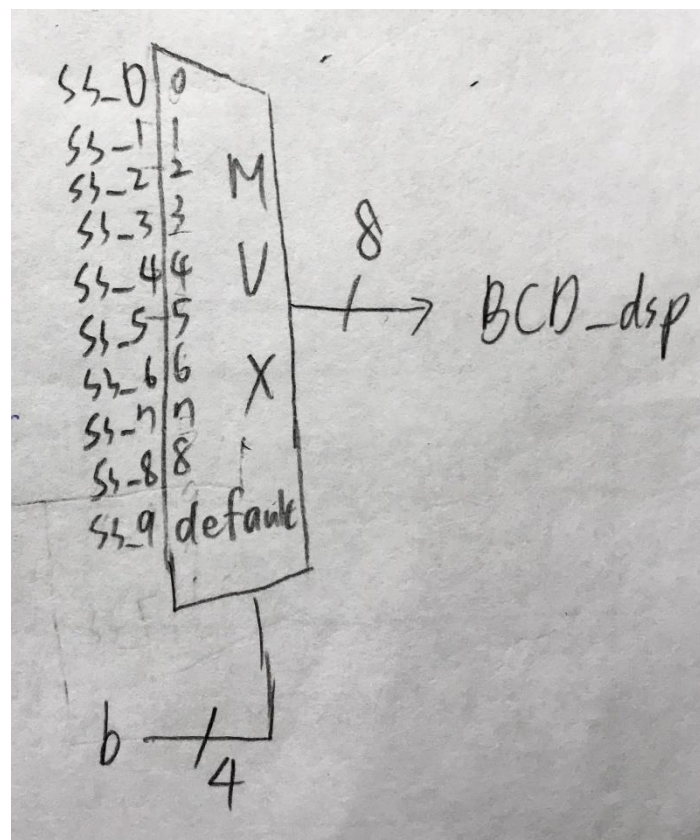 ss_0 0
ss_1 1
ss_2 2
ss_3 3
ss_4 4
ss_5 5
ss_6 6
ss_7 7
ss_8 8
ss_9 default
MUX
8
BCD_dsp
b
4